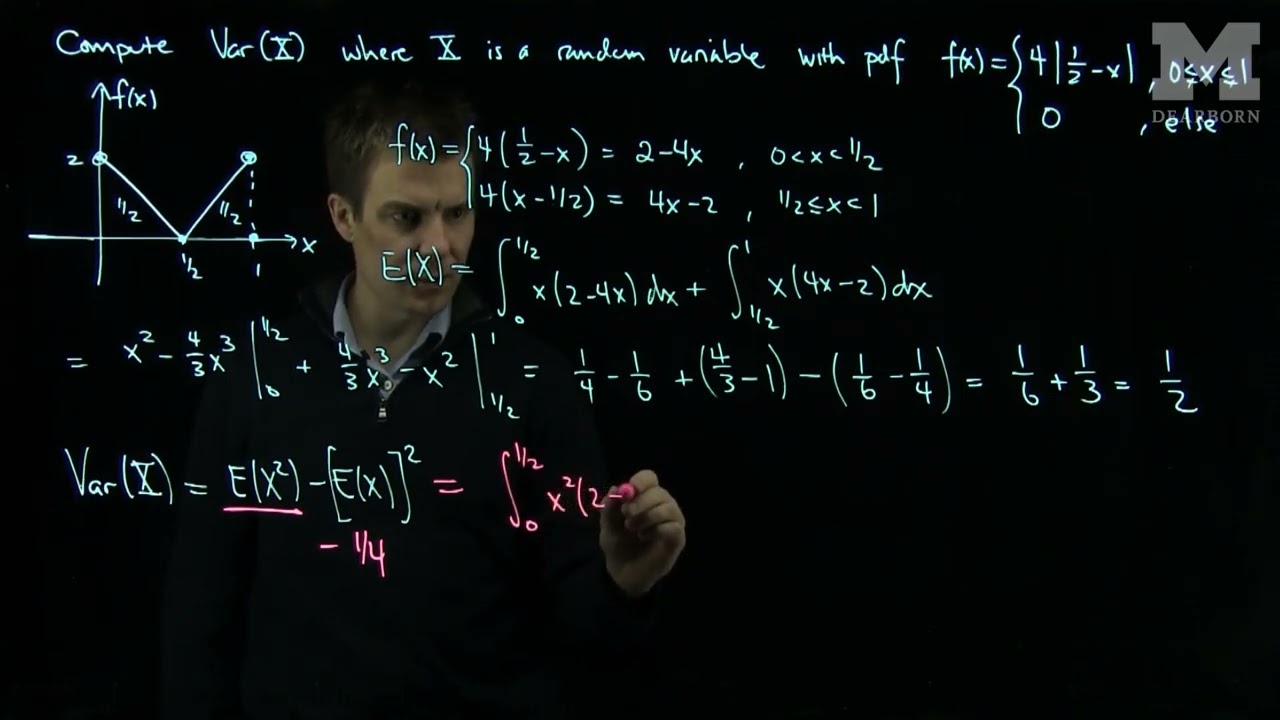 Compute Var(X) where X is a random variable with pdf f(x) = { 4|1/2 - x| , 0 ≤ x ≤ 1
0 , else
M
DEARBORN
f(x)
2
1/2
1/2
1/2
1
x
f(x) = { 4(1/2 - x) = 2 - 4x , 0 < x < 1/2
4(x - 1/2) = 4x - 2 , 1/2 ≤ x < 1
E(X) = ∫_0^{1/2} x(2 - 4x) dx + ∫_{1/2}^1 x(4x - 2) dx
= x² - 4/3 x³ |_0^{1/2} + 4/3 x³ - x² |_{1/2}^1 = 1/4 - 1/6 + (4/3 - 1) - (1/6 - 1/4) = 1/6 + 1/3 = 1/2
Var(X) = E(X²) - [E(X)]² = ∫_0^{1/2} x²(2 -
- 1/4